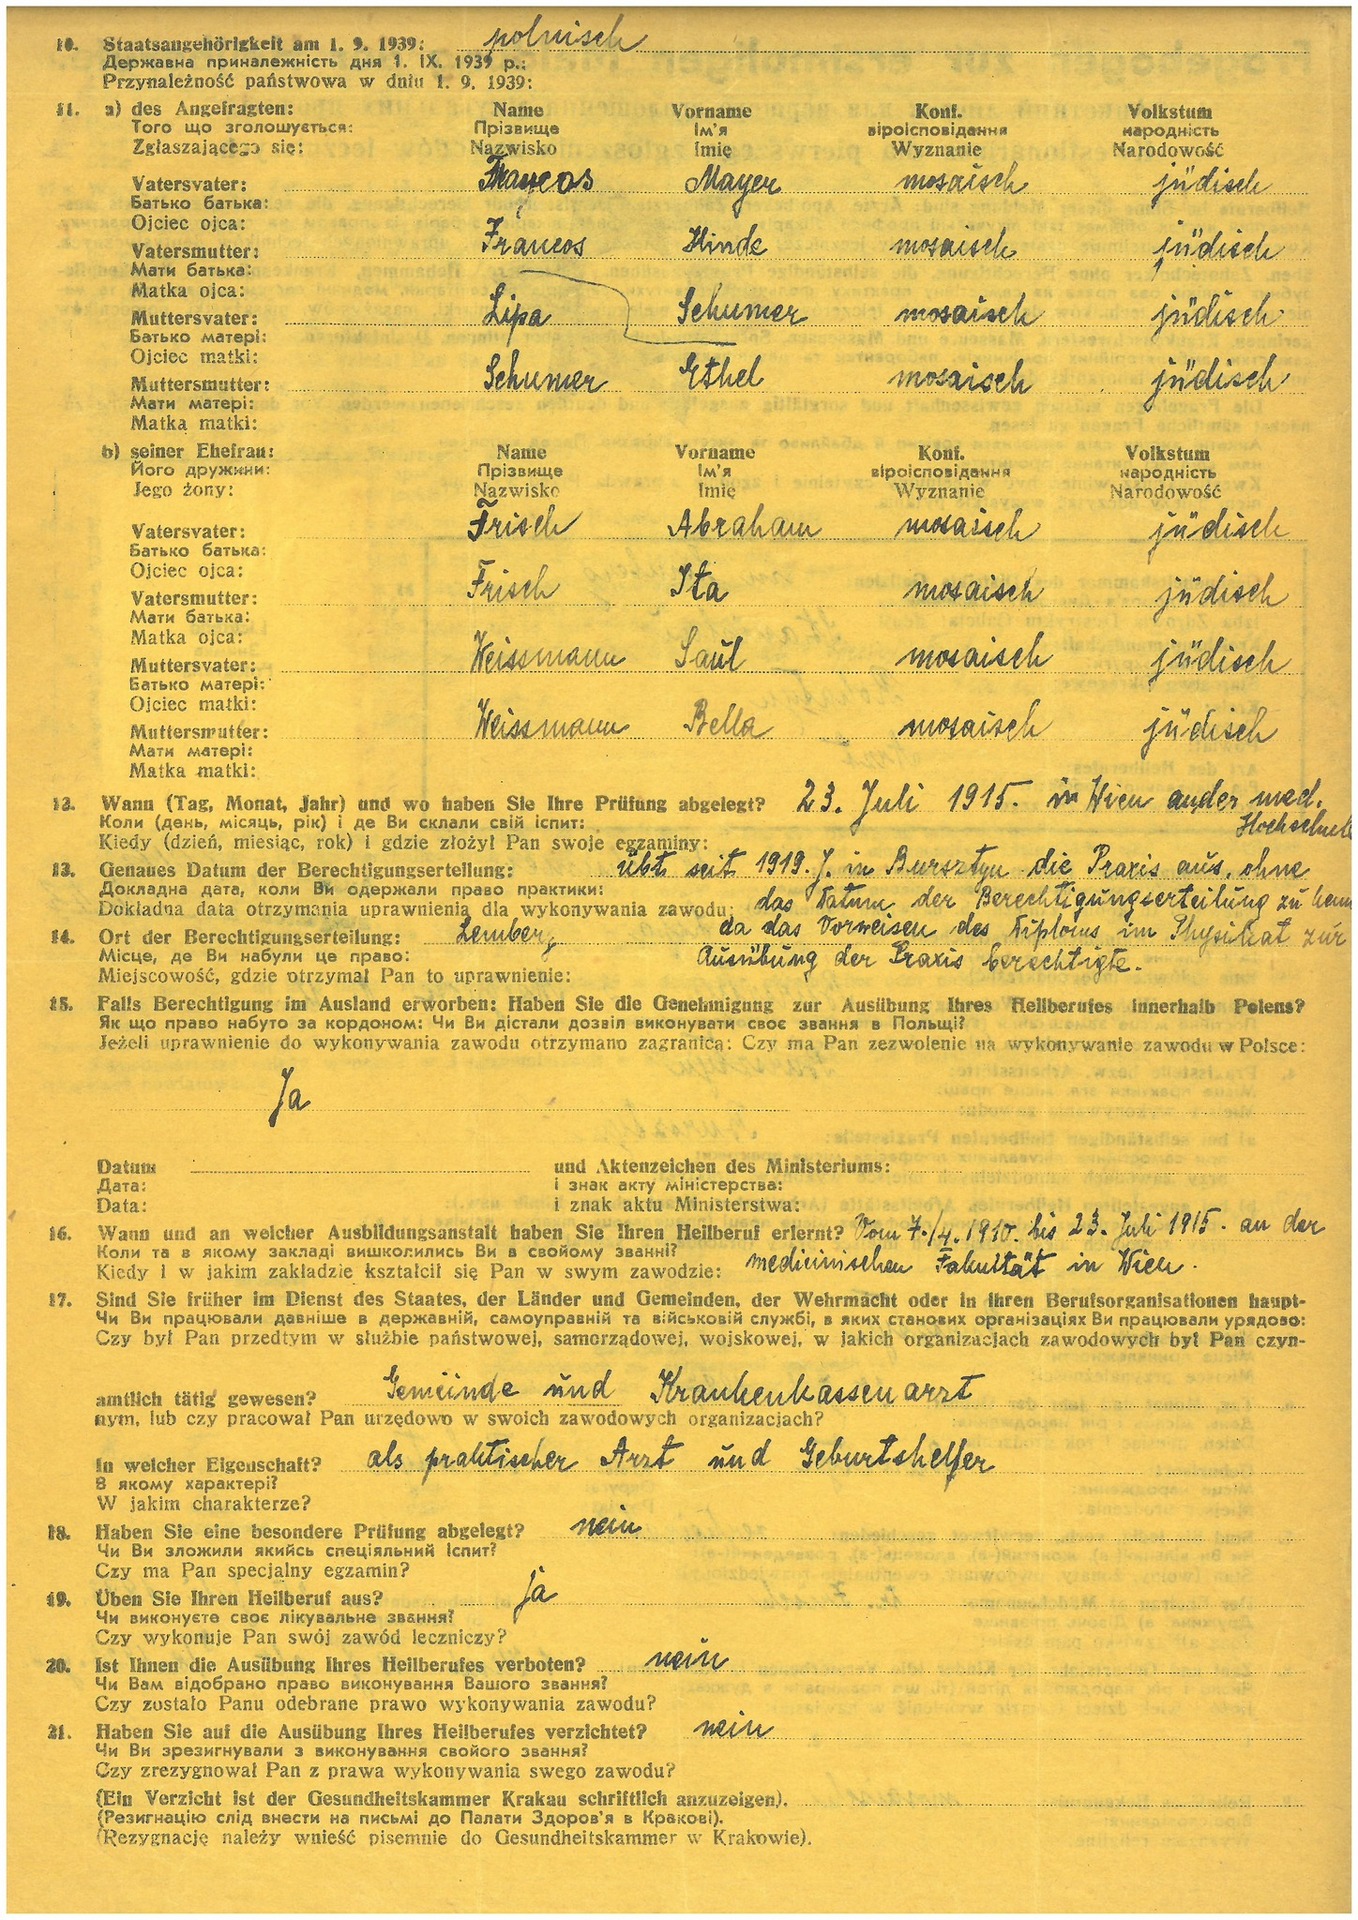 10. Staatsangehörigkeit am 1. 9. 1939: polnisch
Державна приналежність дня 1. IX. 1939 р.:
Przynależność państwowa w dniu 1. 9. 1939:
11. a) des Angefragten: Name Vorname Konf. Volkstum
Того що зголошується: Прізвище Ім'я віроісповідання народність
Zgłaszającego się: Nazwisko Imię Wyznanie Narodowość
Vatersvater: Mayer mosaisch jüdisch
Батько батька:
Ojciec ojca:
Vatersmutter: Francos Hinde mosaisch jüdisch
Мати батька:
Matka ojca:
Muttersvater: Lipa Schumer mosaisch jüdisch
Батько матері:
Ojciec matki:
Muttersmutter: Schumer Ethel mosaisch jüdisch
Мати матері:
Matka matki:
b) seiner Ehefrau: Name Vorname Konf. Volkstum
Його дружини: Прізвище Ім'я віроісповідання народність
Jego żony: Nazwisko Imię Wyznanie Narodowość
Vatersvater: Frisch Abraham mosaisch jüdisch
Батько батька:
Ojciec ojca:
Vatersmutter: Frisch Ita mosaisch jüdisch
Мати батька:
Matka ojca:
Muttersvater: Weissmann Saul mosaisch jüdisch
Батько матері:
Ojciec matki:
Muttersmutter: Weissmann Bella mosaisch jüdisch
Мати матері:
Matka matki:
12. Wann (Tag, Monat, Jahr) und wo haben Sie Ihre Prüfung abgelegt? 23. Juli 1915. in Wien an der med.
Коли (день, місяць, рік) і де Ви склали свій іспит: Hochschule
Kiedy (dzień, miesiąc, rok) i gdzie złożył Pan swoje egzaminy:
13. Genaues Datum der Berechtigungserteilung: übt seit 1919. J. in Bursztyn die Praxis aus, ohne
Докладна дата, коли Ви одержали право практики:
Dokładna data otrzymania uprawnienia dla wykonywania zawodu: das Datum der Berechtigungserteilung zu
14. Ort der Berechtigungserteilung: Lemberg da das Vorweisen des Diploms im Physikat zur
Місце, де Ви набули це право: Ausübung der Praxis berechtigte.
Miejscowość, gdzie otrzymał Pan to uprawnienie:
15. Falls Berechtigung im Ausland erworben: Haben Sie die Genehmigung zur Ausübung Ihres Heilberufes innerhalb Polens?
Як що право набуто за кордоном: Чи Ви дістали дозвіл виконувати своє звання в Польщі?
Jeżeli uprawnienie do wykonywania zawodu otrzymano zagranicą: Czy ma Pan zezwolenie na wykonywanie zawodu w Polsce:
Ja
Datum und Aktenzeichen des Ministeriums:
Дата: і знак акту міністерства:
Data: i znak aktu Ministerstwa:
16. Wann und an welcher Ausbildungsanstalt haben Sie Ihren Heilberuf erlernt? Vom 7./4. 1910. bis 23. Juli 1915. an der
Коли та в якому закладі вишколились Ви в свойому званні?
Kiedy i w jakim zakładzie kształcił się Pan w swym zawodzie: medicinischen Fakultät in Wien.
17. Sind Sie früher im Dienst des Staates, der Länder und Gemeinden, der Wehrmacht oder in Ihren Berufsorganisationen haupt-
Чи Ви працювали давніше в державній, самоуправній та військовій службі, в яких станових організаціях Ви працювали урядово:
Czy był Pan przedtym w służbie państwowej, samorządowej, wojskowej, w jakich organizacjach zawodowych był Pan czyn-
amtlich tätig gewesen? Gemeinde und Krankenkassenarzt
nym, lub czy pracował Pan urzędowo w swoich zawodowych organizacjach?
In welcher Eigenschaft? als praktischer Arzt und Geburtshelfer
В якому характері?
W jakim charakterze?
18. Haben Sie eine besondere Prüfung abgelegt? nein
Чи Ви зложили якийсь спеціяльний іспит?
Czy ma Pan specjalny egzamin?
19. Üben Sie Ihren Heilberuf aus? ja
Чи виконуєте своє лікувальне звання?
Czy wykonuje Pan swój zawód leczniczy?
20. Ist Ihnen die Ausübung Ihres Heilberufes verboten? nein
Чи Вам відобрано право виконування Вашого звання?
Czy zostało Panu odebrane prawo wykonywania zawodu?
21. Haben Sie auf die Ausübung Ihres Heilberufes verzichtet? nein
Чи Ви зрезигнували з виконування свойого звання?
Czy zrezygnował Pan z prawa wykonywania swego zawodu?
(Ein Verzicht ist der Gesundheitskammer Krakau schriftlich anzuzeigen).
(Резигнацію слід внести на письмі до Палати Здоров'я в Кракові).
(Rezygnację należy wnieść pisemnie do Gesundheitskammer w Krakowie).